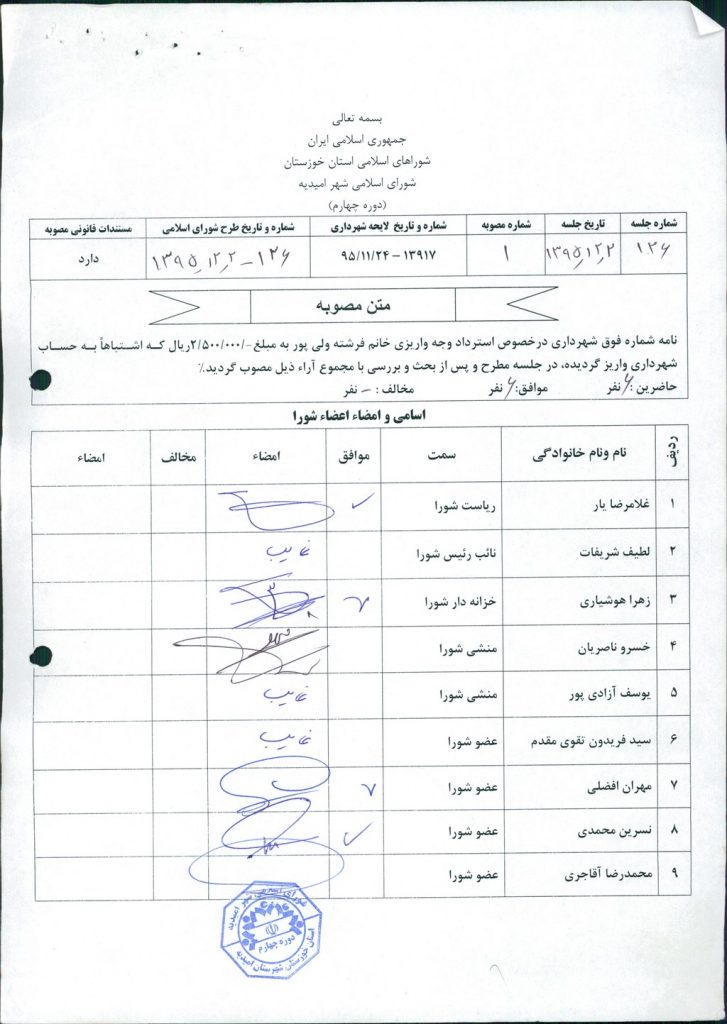 بسمه تعالی
جمهوری اسلامی ایران
شوراهای اسلامی استان خوزستان
شورای اسلامی شهر امیدیه
(دوره چهارم)
شماره جلسه تاریخ جلسه شماره مصوبه شماره و تاریخ لایحه شهرداری شماره و تاریخ طرح شورای اسلامی مستندات قانونی مصوبه
۱۲۶ ۱۳۹۵٫۱۲٫۲ ۱ ۱۳۹۱۷ – ۹۵/۱۱/۲۴ ۱۲۶ – ۱۳۹۵٫۱۲٫۲ دارد
متن مصوبه
نامه شماره فوق شهرداری درخصوص استرداد وجه واریزی خانم فرشته ولی پور به مبلغ-/۲/۵۰۰/۰۰۰ریال که اشتباهاً به حساب
شهرداری واریز گردیده، در جلسه مطرح و پس از بحث و بررسی با مجموع آراء ذیل مصوب گردید.٪
حاضرین :۶ نفر موافق:۶ نفر مخالف : – نفر
اسامی و امضاء اعضاء شورا
ردیف نام ونام خانوادگی سمت موافق امضاء مخالف امضاء
۱ غلامرضا یار ریاست شورا
۲ لطیف شریفات نائب رئیس شورا غایب
۳ زهرا هوشیاری خزانه دار شورا
۴ خسرو ناصریان منشی شورا
۵ یوسف آزادی پور منشی شورا غایب
۶ سید فریدون تقوی مقدم عضو شورا غایب
۷ مهران افضلی عضو شورا
۸ نسرین محمدی عضو شورا
۹ محمدرضا آقاجری عضو شورا
شورای اسلامی شهر امیدیه
دوره چهارم
استان خوزستان شهرستان امیدیه